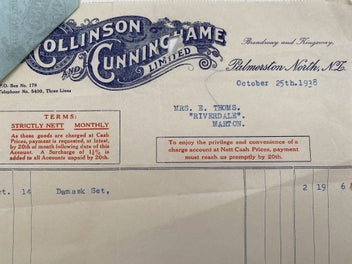 COLLINSON
AND CUNNINGHAME
LIMITED
Broadway and Kingsway,
Palmerston North, N.Z.
P.O. Box No. 178
Telephone No. 5400, Three Lines
October 25th.1938
MRS. E. THOMS.
"RIVERDALE".
MARTON.
TERMS:
STRICTLY NETT MONTHLY
As these goods are charged at Cash
Prices, payment is requested, at latest,
by 20th of month following date of this
Account. A Surcharge of 1½% is
added to all Accounts unpaid by 20th.
To enjoy the privilege and convenience of a
charge account at Nett Cash Prices, payment
must reach us promptly by 20th.
14 Damask Set, 2 19 6